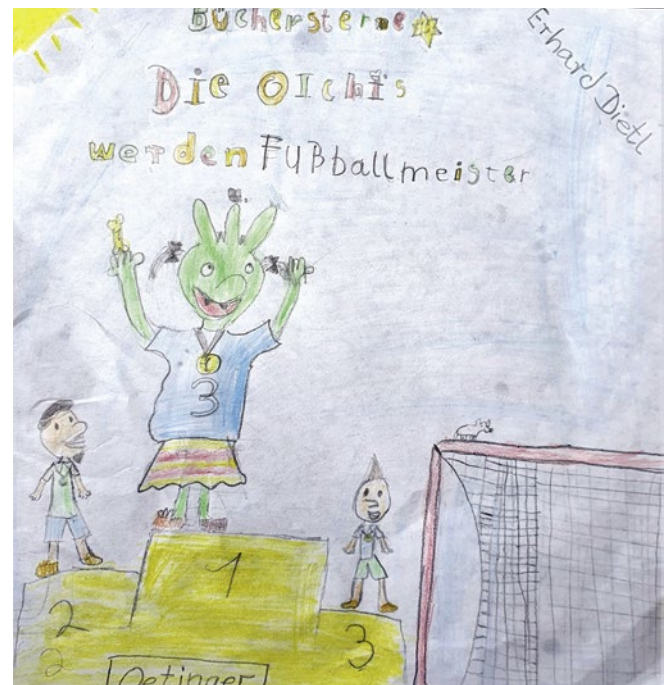 Büchersterne
Erhard Dietl
Die Olchis
werden Fußballmeister
3
1
2
3
2
Oetinger